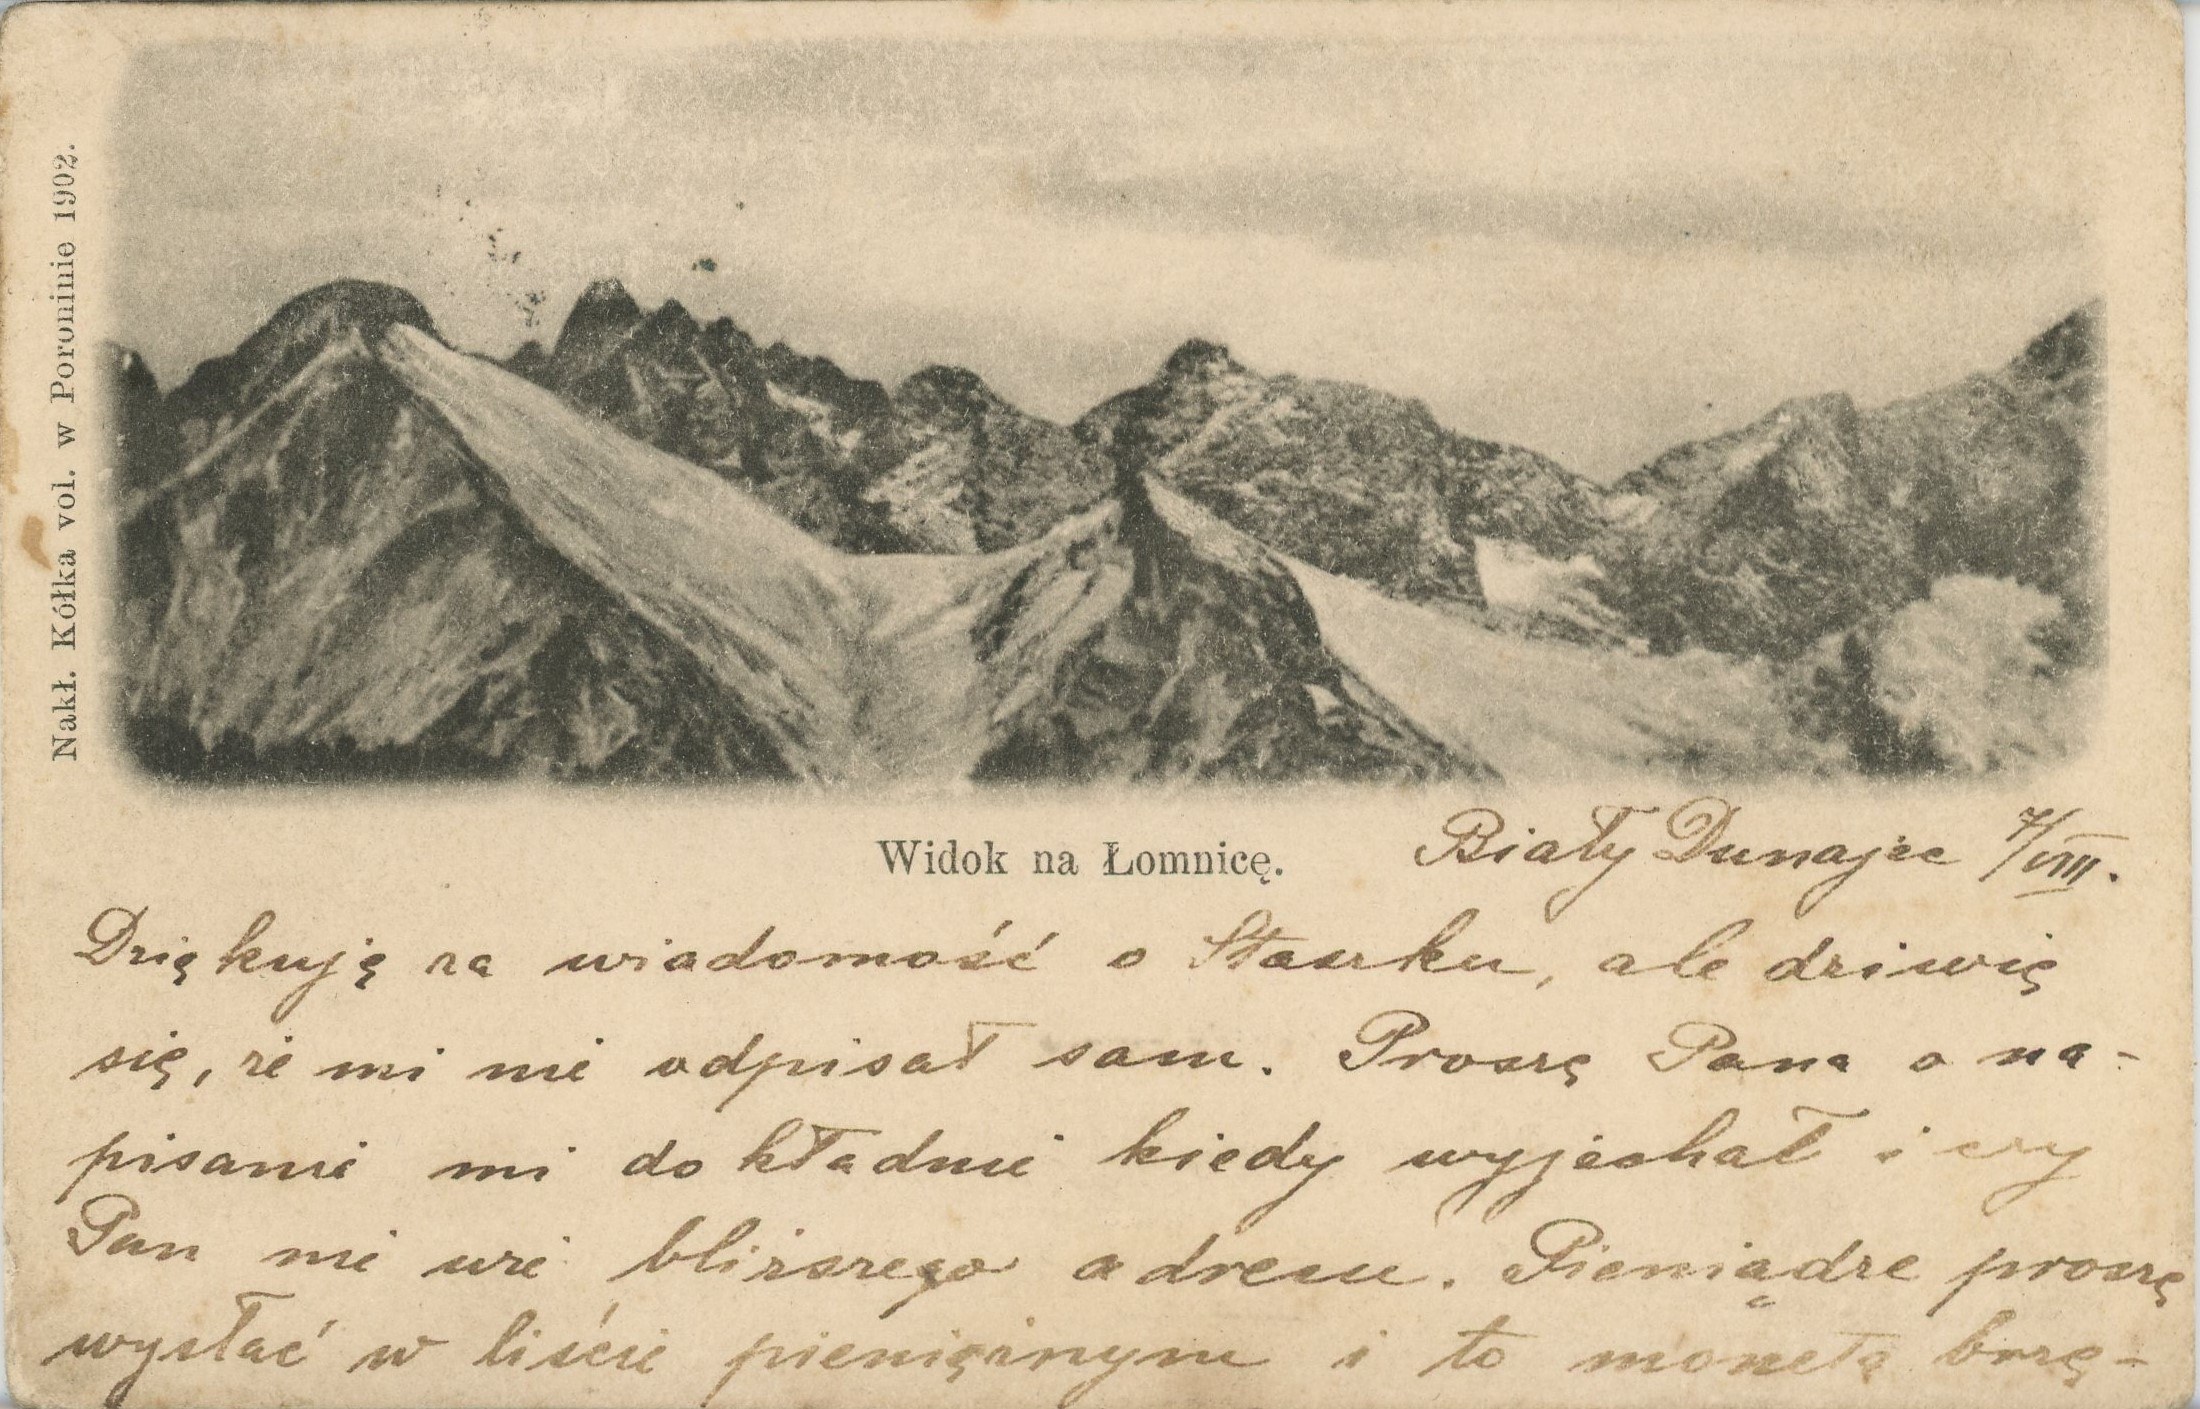 Nakł. Kółka vol. w Poroninie 1902.
Widok na Łomnicę.
Biały Dunajec 7/VIII.
Dziękuję za wiadomość o Staszku, ale dziwię
się, że mi nie odpisał sam. Proszę Pana o na-
pisanie mi dokładnie kiedy wyjechał i czy
Pan nie wie bliższego adresu. Pieniądze proszę
wysłać w liście pieniężnym i to monetą brzę-